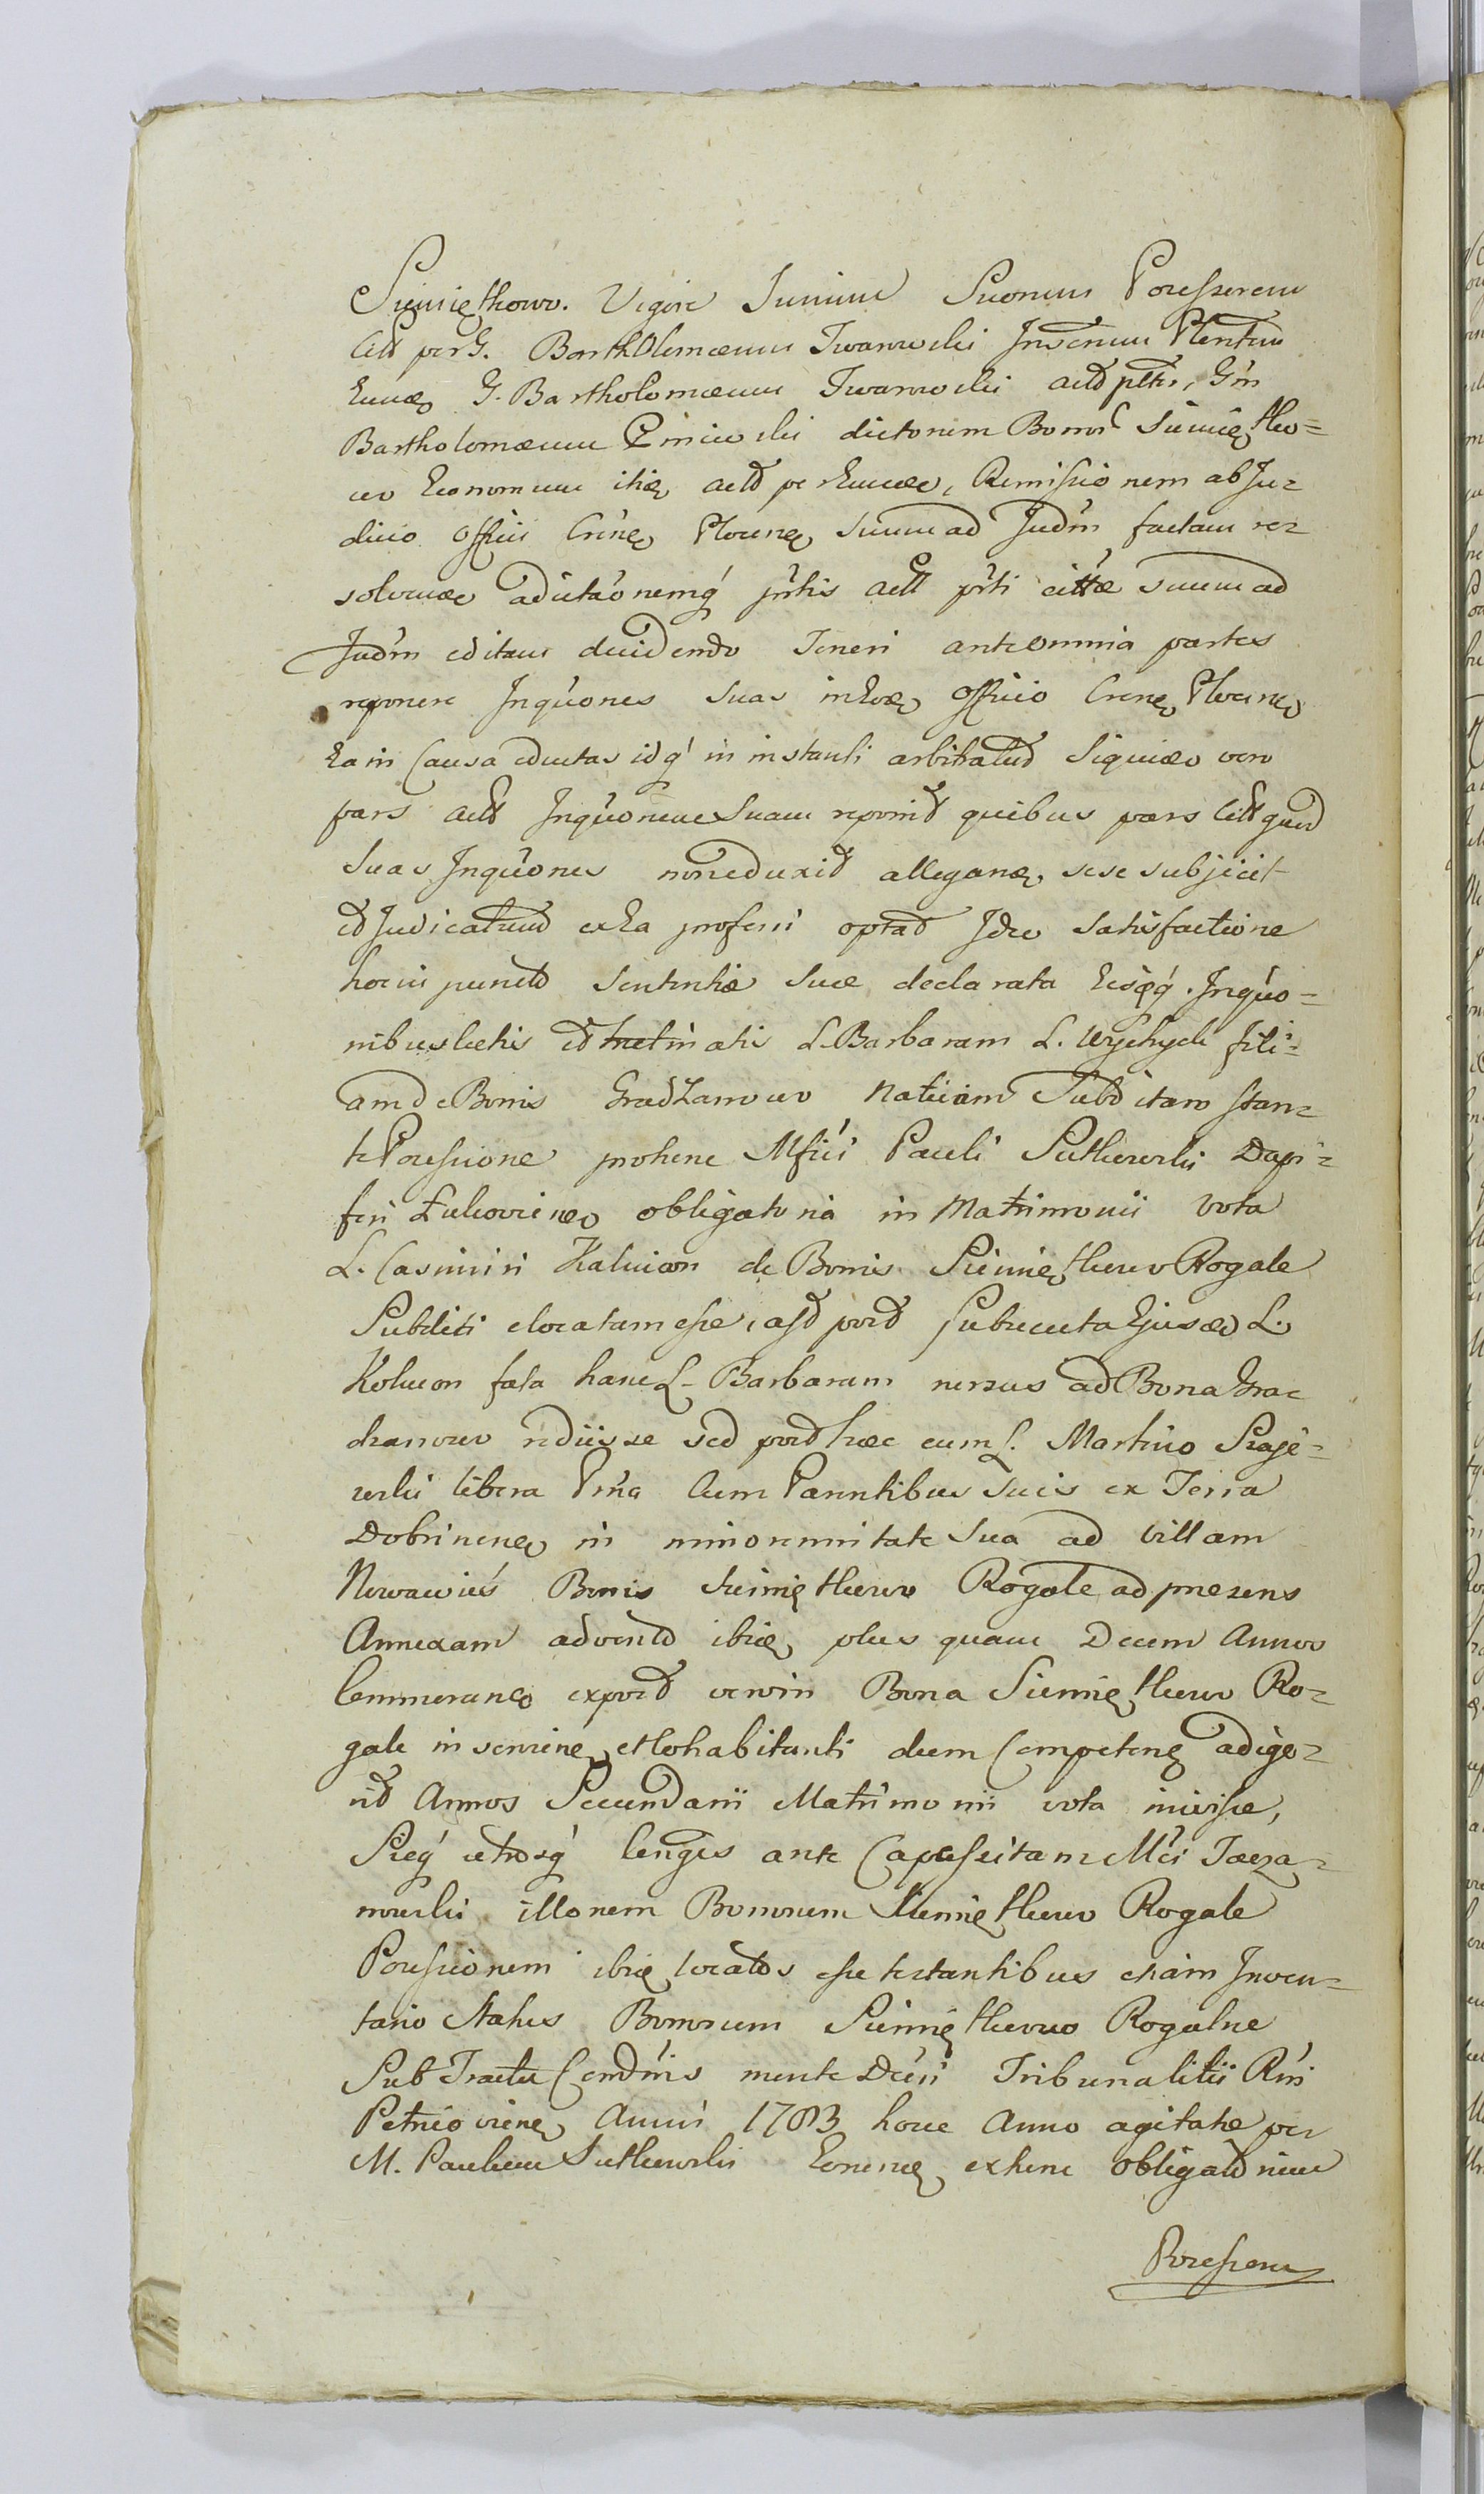 Siemięthowo. Vigore Jurium Suorum Possessorem
Citt per G. Bartholomæum Iwanowski Juratum Plentem
Eund G. Bartholomæum Iwanowski act pltr, Gm
Bartholomæum dictorum Bonor Siemiętko=
wo Economum itię act per Eund, Remissionem ab Ju=
dicio officii Crnę Plocnę suum ad Judm factam re=
solvendo adictaonemq prtis act prti cittæ suum ad
Judm editam decidendo Teneri ante omnia partes
reponere Inquones suas in officio Crenę Plocnę
Ea in Causa eductas idq in instanti arbitratur Siquid vero
pars act Inquonem Suam reponit quibus pars Citt quod
Suas Inquones non eduxit allegans sese subjicit
et Judicatum ex Ea proferri optat Ideo satisfactione
hoc in puncto Sententiæ suæ declarata Eisqq. Inquo=
nibus lectis et trutinatis L. Barbaram L. Wychych fili=
am de Bonis Gradzanowo Nativam Subditam stan=
te Possessione protunc Mfici Pauli Sutkowski Dapi=
feri Łukoviensis obligatoria in Matrimonii vota
L. Casimiri Kalwion de Bonis Siemiętkowo Rogale
Subditi elocatam esse, ast post subsecuta Ejusdem L.
Kolwon fata hanc L. Barbaram rursus ad Bona Gra
dzanowo rediisse sed post hæc cum L. Martino
libera Prna Cum Parentibus suis ex Terra
Dobrinenę in minorennitate sua ad villam
Nowawieś Bonis Siemiętkowo Rogale ad præsens
Annexam advento ibię plus quam Decem Annos
Commeranę expost vero in Bona Siemiętkowo Ro=
gale in servienę et Cohabitanti dum Competenę adige=
rit Annos Secundarii Matrimonii vota iniisse,
Sicq utrosq longes ante Capessitam Mci
illorum Bonorum Siemiętkowo Rogale
Possessionem ibię locatos esse testantibus etiam Inven=
tario Status Bonorum Siemiętkowo Rogalne
Sub Tractu Condnis mente Decrti Tribunalitii Rni
Petricovienę Anni 1783 hocce Anno agitatæ per
M. Paulum Sutkowski Eorumę extunc obligatorium
Possessorem